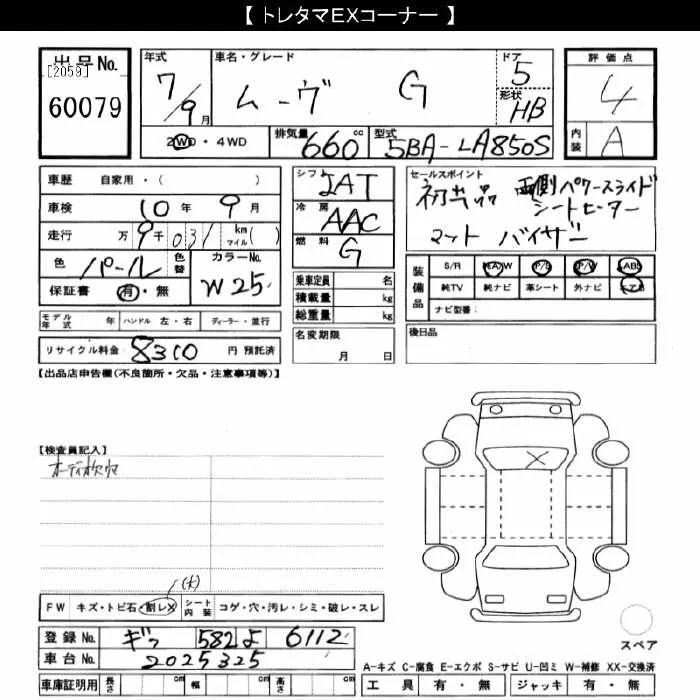 【 トレタマEXコーナー 】
出品No.
[2059]
60079
年式
7/9月
車名・グレード
ムーヴ G
ドア
5
形状
HB
評価点
4
内装
A
2WD・4WD
排気量
660 cc
型式
5BA-LA850S
車歴 自家用・( )
車検 10年 9月
走行 万 9千 031 km マイル( )
色 パール 色替 カラーNo.
W25
保証書 有・無
シフト
IAT
冷房
AAC
燃料
G
乗車定員 名
積載量 kg
総重量 kg
セールスポイント
両側パワースライド
シートヒーター
マット バイザー
装備品
S/R (A)W P/S P/W ABS
純TV 純ナビ 革シート 外ナビ エアB
ナビ型番:
モデル年式 年 ハンドル 左・右 ディーラー・並行
リサイクル料金: 8310 円 預託済
名変期限
月 日
後日品
【出品店申告欄(不良箇所・欠品・注意事項等)】
【検査員記入】
オーディオ欠品
(大)
FW キズ・トビ石・割レX シート内装 コゲ・穴・汚レ・シミ・破レ・スレ
X
登録No. ギフ 582 よ 6112
車台No. 2025325
スペア
A-キズ C-腐食 E-エクボ S-サビ U-凹ミ W-補修 XX-交換済
車庫証明用 長さ cm 幅 cm 高さ cm
工具 有・無 ジャッキ 有・無